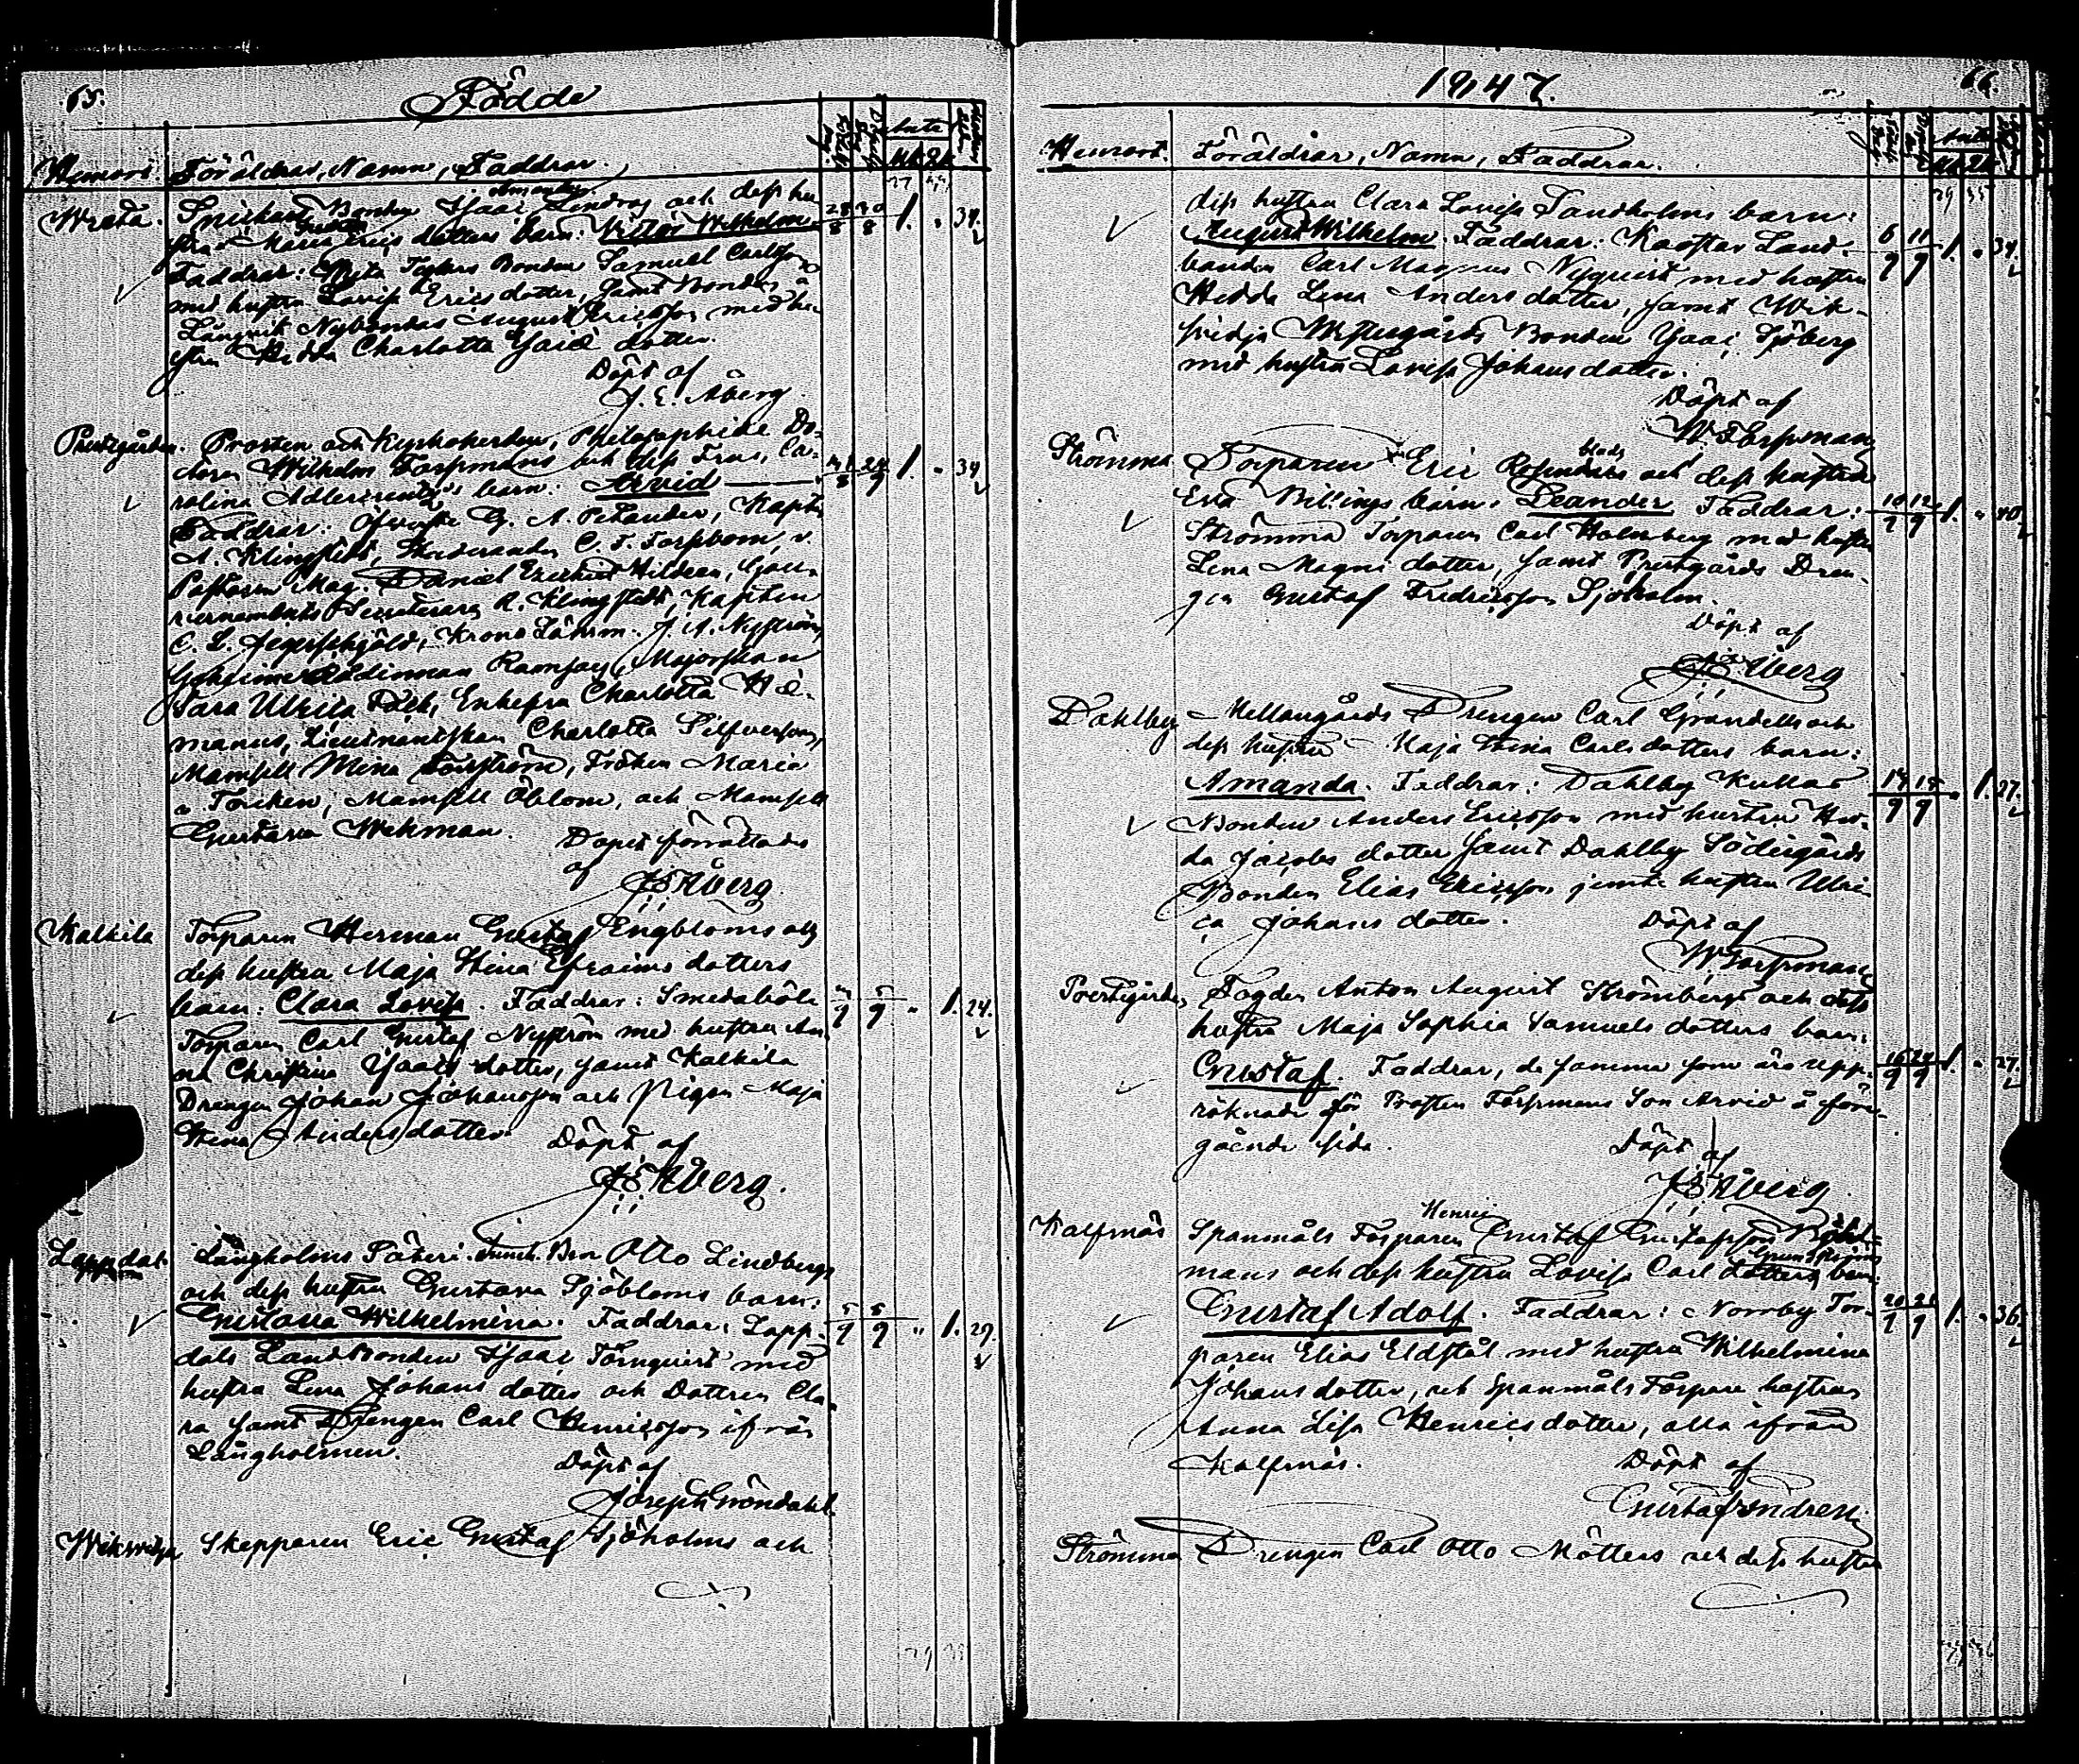 65.
Födde
Hemort. Föräldrar, Namn, Faddrar.
Antal
Mk. Qk.
Amandus
Wreta. Snickare Bonden Isaac Lindros och dess hu
stru Maria Erics dotters barn: Victor Wilhelm. 28/8 30/8 1. " 34.
Faddrar: Bonden Samuel Carlsson
med hustru Lovisa Ericsdotter, samt Bonden
Långvik Nybondas August Ericsson med hu
stru Hedda Charlotta Isaics dotter.
Döpt af
J. E. Åberg.
Prestgården. Prosten och Kyrkoherden, Philosophiae Do-
ctoren Wilhelm Forssmans och dess Frus, Ca-
rolina Adlercreutz's barn: Arvid 1. " 34
Faddrar: Öfverste G. A. Petander, Kapt.
A. Klingstedt, Studeranden C. F. Forssbom, v.
Pastoren Mag. Daniel Ezechiel Hildeen, Gou-
vernements Secreteraren R. Klingstedt, Kapiten
C. L. Jegerschjöld, Krono Länsm. J. A. Nyström
Geheime Rådinnan Ramsay, Majorskan
Sara Ulrica Falck, Enkefru Charlotta He-
manus, Lieutnantskan Charlotta Silfversvan,
Mamsell Mina Forsström, Fröken Maria
a Forselles, Mamsell Öblom, och Mamsell
Gustava Wekman.
Dopet förrättades
af
J E Åberg.
Kalkila Torparen Herman Gustaf Engbloms och
dess hustru Maja Stina Efraims dotters
barn: Clara Lovisa. Faddrar: Smedaböle 9 5/9 " 1. 24.
Torparen Carl Gustaf Nyström med hustru An-
na Christina Isaacs dotter, samt Kalkila
Drengen Johan Johansson och Pigan Maja
Stina Anders dotter.
Döpt af
J E Åberg.
Lappdal Långholms Säteri Otto Lindbergs
och dess hustru Gustava Sjöbloms barn:
Gustava Wilhelmina. Faddrar: Lapp- 5/9 8/9 " 1. 29.
dals Landbonden Isaac Törnqvist med
hustru Lena Johans dotter och Dottren Cla-
ra samt Drengen Carl Henricsson ifrån
Långholmen.
Döpt af
Joseph Gröndahl.
Wiksvidja Skepparen Eric Gustaf Sjöholms och
1847.
66.
Hemort. Föräldrar, Namn, Faddrar.
Antal
Mk. Qk.
dess hustru Clara Lovisa Sandholms barn:
August Wilhelm. Faddrar: Land- 6/9 11/9 1. " 34.
bonden Carl Magnus Nyqvist med hustru
Hedda Lena Anders dotter, samt Wik-
svidja Westergårds Bonden Isaac Sjöberg
med hustru Lovisa Johans dotter.
Döpt af
W. Forssman
Strömma Torparen Eric Rosenblads och dess hustru
Eva Billings barn: Leander. Faddrar: 10/9 12/9 1. " 40.
Strömma Torparen Carl Holmberg med hustru
Lena Magni dotter, samt Prestgårds Dren-
gen Gustaf Fredricsson Sjöholm.
Döpt af
J E Åberg
Dahlby Mellangårds Drengen Carl Grandells och
dess hustru Maja Stina Carls dotters barn:
Amanda. Faddrar: Dahlby Kullas 14/9 18/9 " 1. 27.
Bonden Anders Ericsson med hustru He-
da Jacobs dotter samt Dahlby Södergårds
Bonden Elias Ericsson jemte hustru Ulri-
ca Johans dotter.
Döpt af
W Forssman
Prestgården Fogden Anton August Strömbergs och dess
hustru Maja Sophia Samuels dotters barn:
Gustaf. Faddrar, de samma som äro upp- 16/9 24/9 1. " 27.
räknade för Prosten Forssmans Son Arvid å före-
gående sida.
Döpt af
J E Åberg
Henric
Kalfnäs Spanmåls Torparen Gustaf Gustafsson
mans och dess hustru Lovisa Carl dotters barn:
Gustaf Adolf. Faddrar: Norrby Tor- 20/9 21/9 1. " 36.
paren Elias Eldstål med hustru Wilhelmina
Johans dotter, och Spanmåls Torpare hustrun
Anna Lisa Henrics dotter, alla ifrån
Kalfnäs.
Döpt af
Gustaf Andresen
Strömma Drengen Carl Otto Mötters och dess hustru